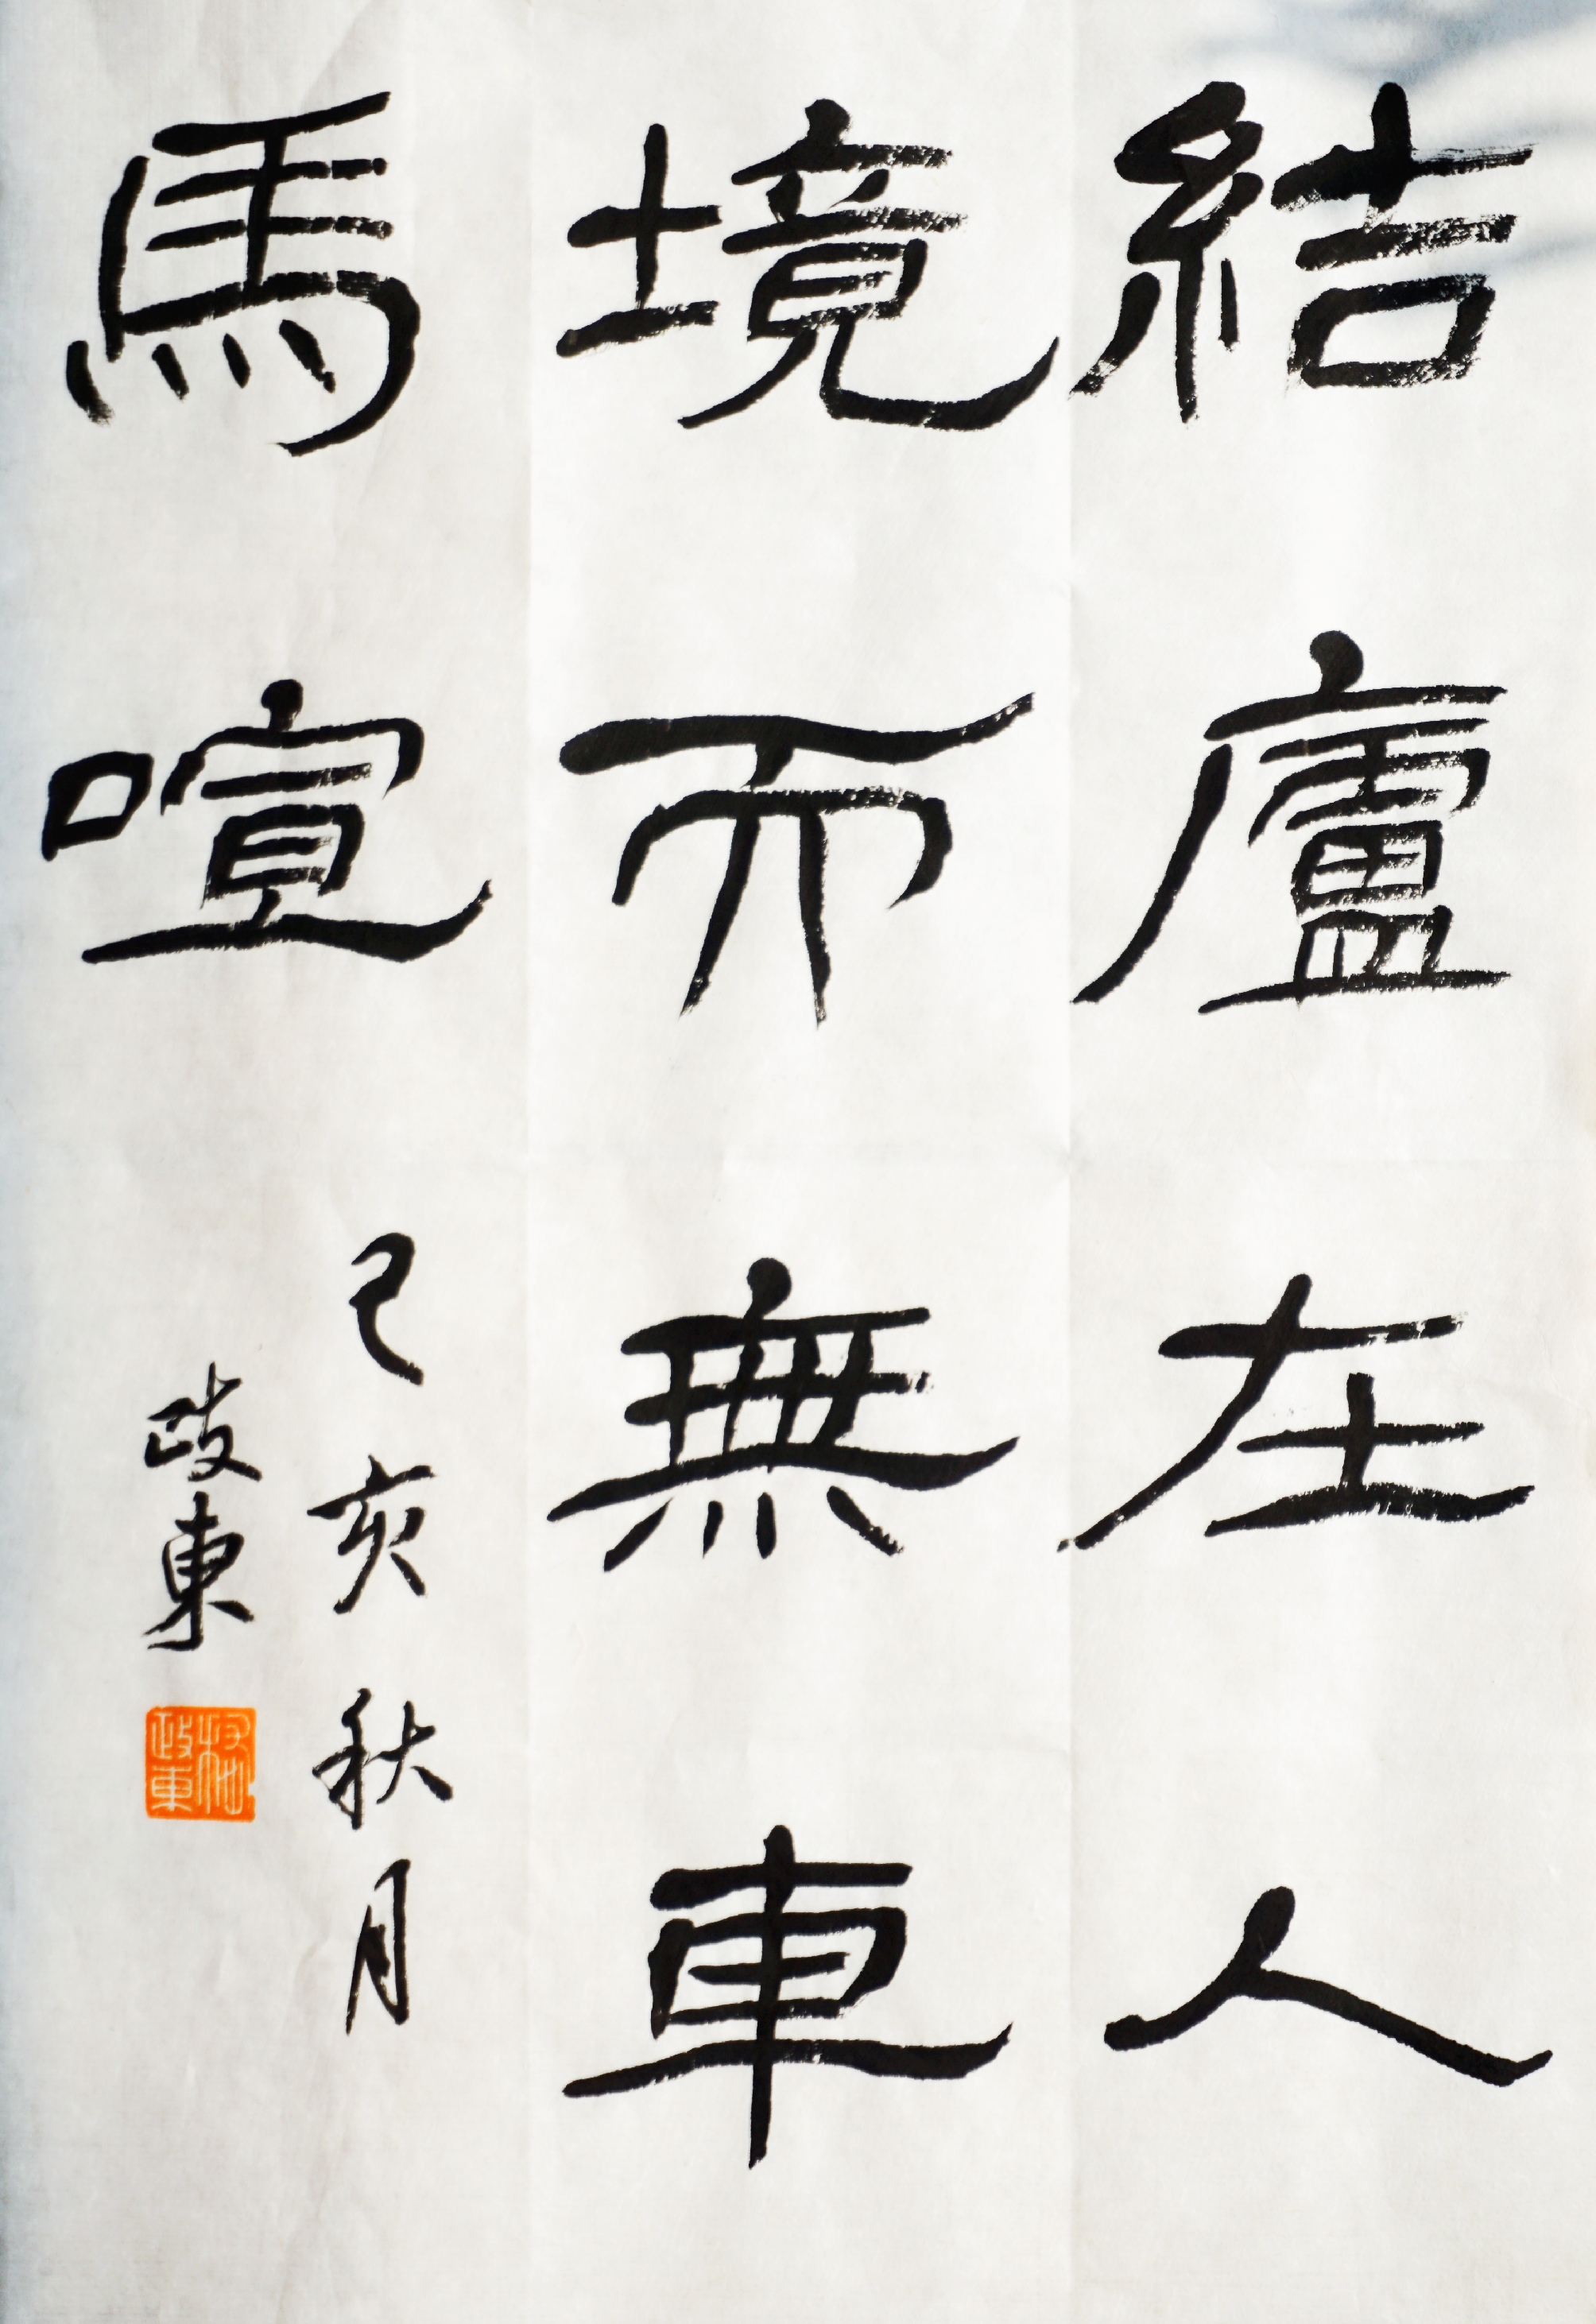 結廬在人
境而無車
馬喧
己亥秋月
政東
楊政東